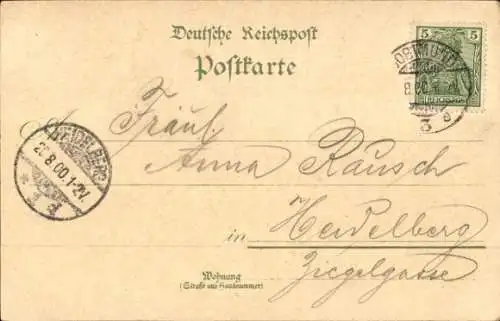 Deutsche Reichspost
Postkarte
5 5
REICHSPOST
DORTMUND
8.00
3 a
Fräul.
HEIDELBERG
8.00.1-2V.
Anna Rausch
in Heidelberg
Ziegelgasse
Wohnung
(Straße und Hausnummer)